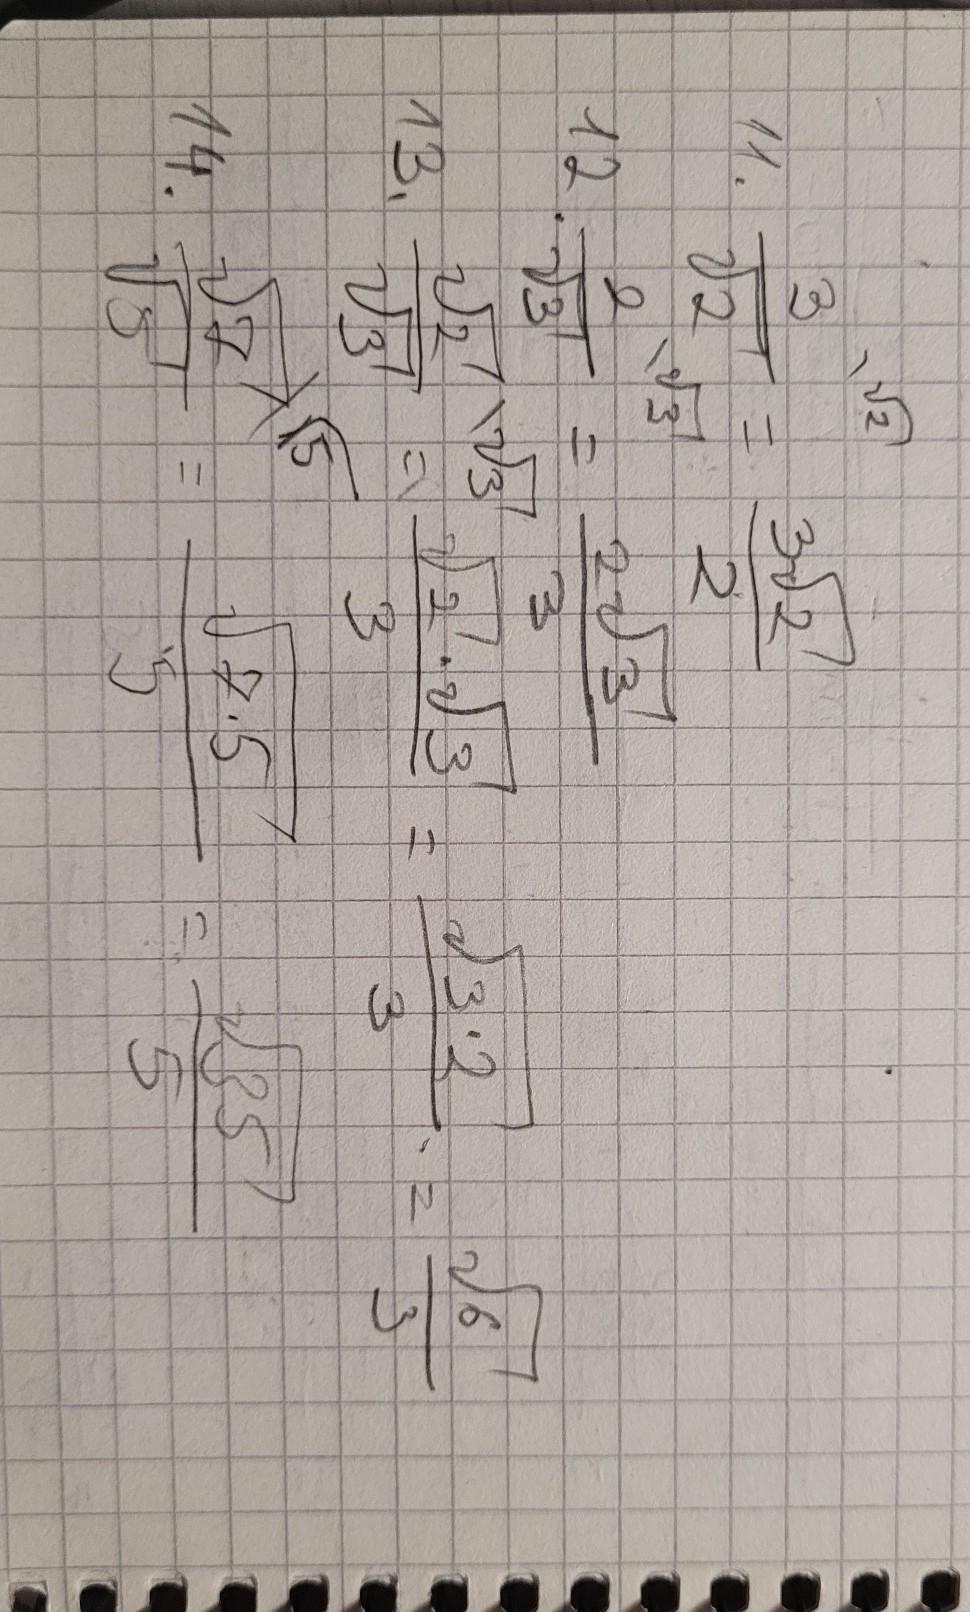 11. 3/√2 \√2 = 3√2/2
12. 2/√3 \√3 = 2√3/3
13. √2/√3 \√3 = √2·√3/3 = √3·2/3 = √6/3
14. √7/√5 \√5 = √7·5/5 = √35/5